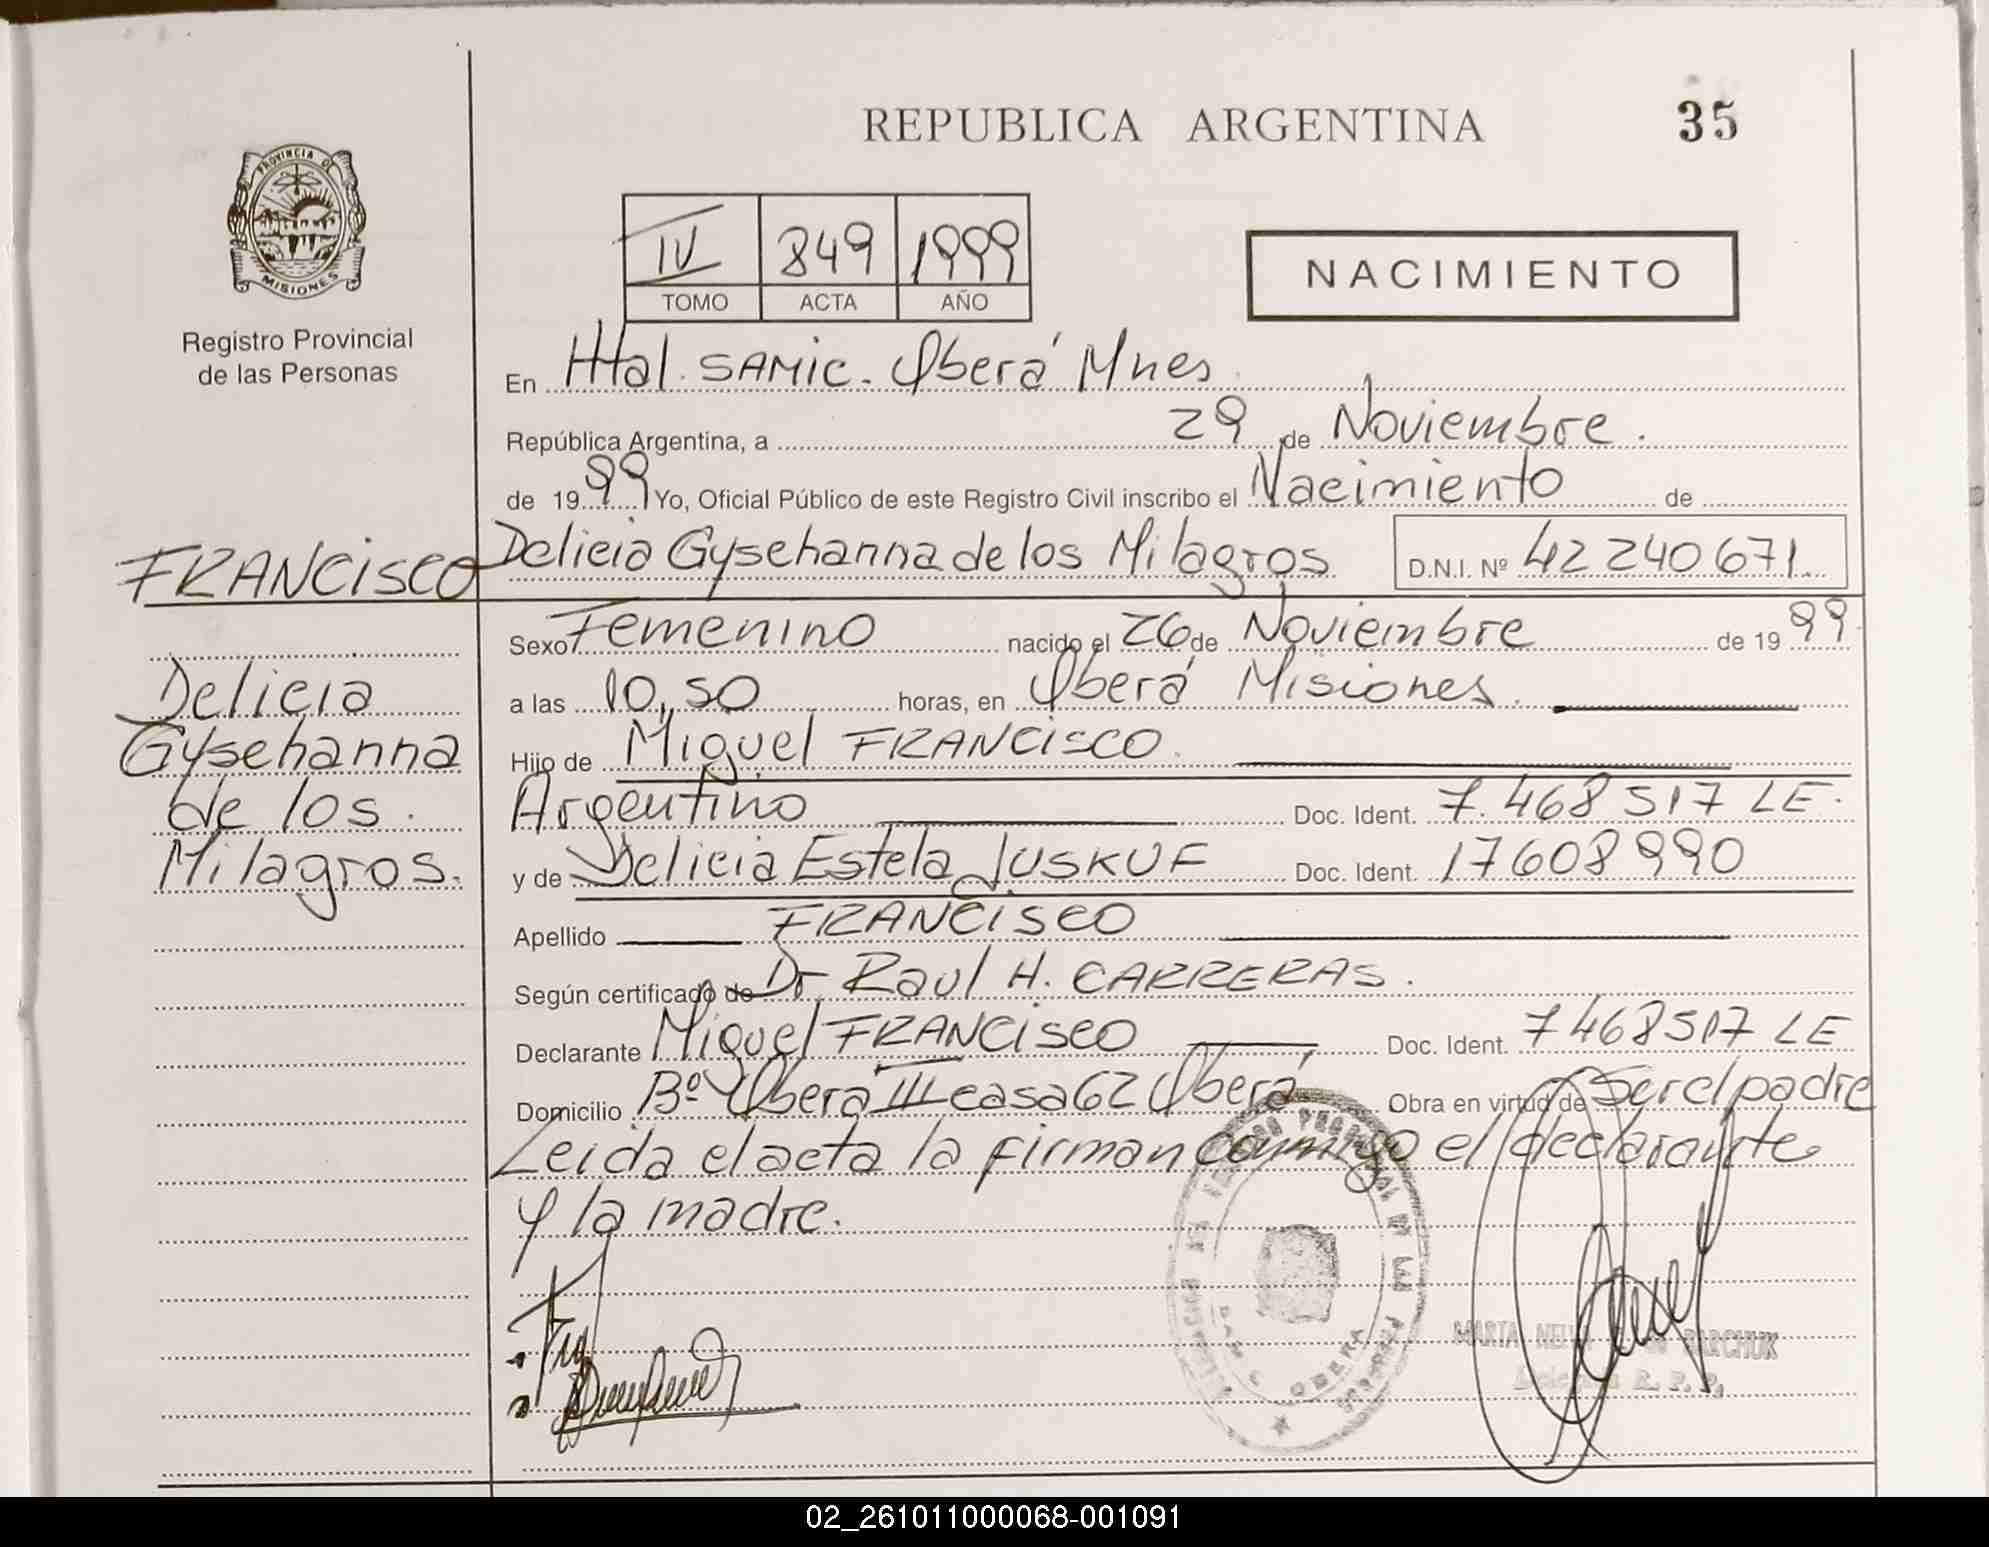 REPUBLICA ARGENTINA
35
PROVINCIA DE
MISIONES
Registro Provincial
de las Personas
IV 849 1999
TOMO ACTA AÑO
NACIMIENTO
En Htal. SAMIC. Oberá Mnes
República Argentina, a 29 de Noviembre.
de 1999 Yo, Oficial Público de este Registro Civil inscribo el Nacimiento de
Delicia Gysehanna de los Milagros D.N.I. Nº 42 240 671
FRANCISCO
Delicia
Gysehanna
de los
Milagros.
Sexo Femenino nacido el 26 de Noviembre de 1999
a las 10,50 horas, en Oberá Misiones.
Hijo de Miguel FRANCISCO.
Argentino Doc. Ident. 7.468 517 LE.
y de Delicia Estela JUSKUF Doc. Ident. 17608990
Apellido FRANCISCO
Según certificado de Dr Raul H. CARRERAS.
Declarante Miguel FRANCISCO Doc. Ident. 7468517 LE
Domicilio Bº Oberá III casa 62 Oberá Obra en virtud de Ser el padre
Leida el acta la firman conmigo el declarante
y la madre.
OBERA
MARTA
R. P. P.
02_261011000068-001091